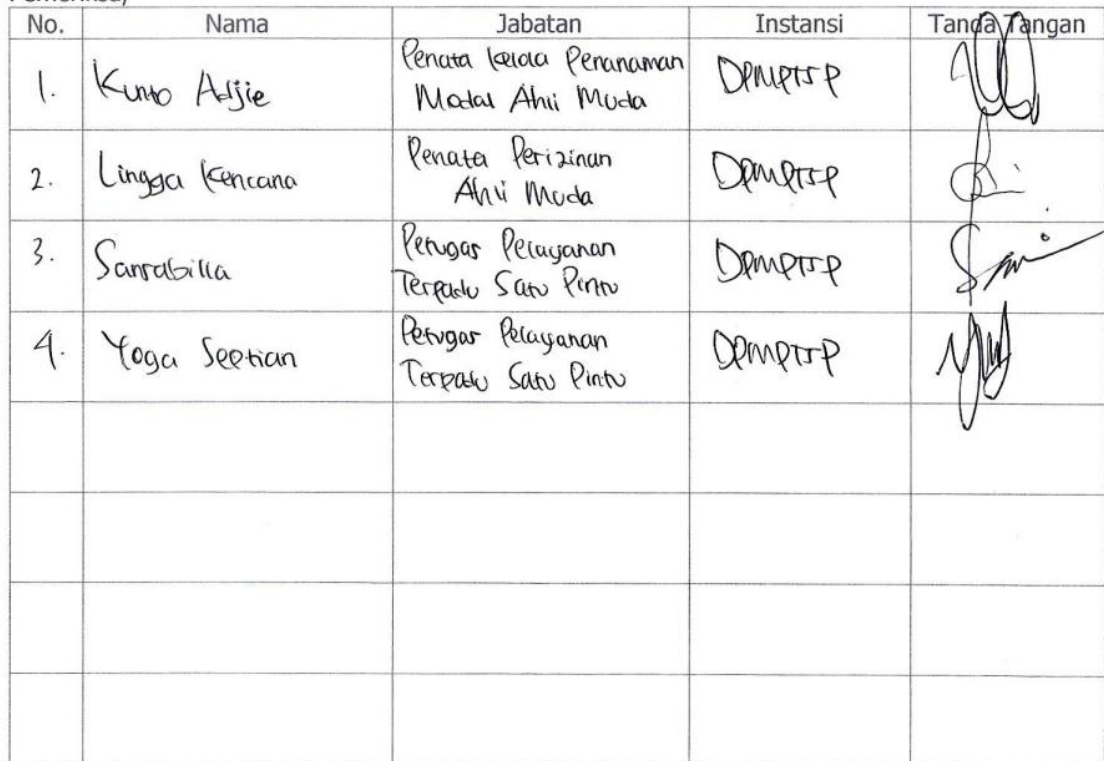 Pemeriksa,
No. Nama Jabatan Instansi Tanda Tangan
1. Kunto Adjie Penata Kelola Penanaman
Modal Ahli Muda DPMPTSP
2. Lingga Kencana Penata Perizinan
Ahli Muda DPMPTSP
3. Sansabilla Petugas Pelayanan
Terpadu Satu Pintu DPMPTSP
4. Yoga Septian Petugas Pelayanan
Terpadu Satu Pintu DPMPTSP